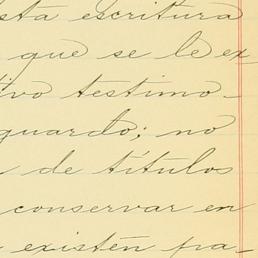 sta escritura
que se le ex
tivo testimo-
guardo; no
de títulos
conservar en
existen fra-